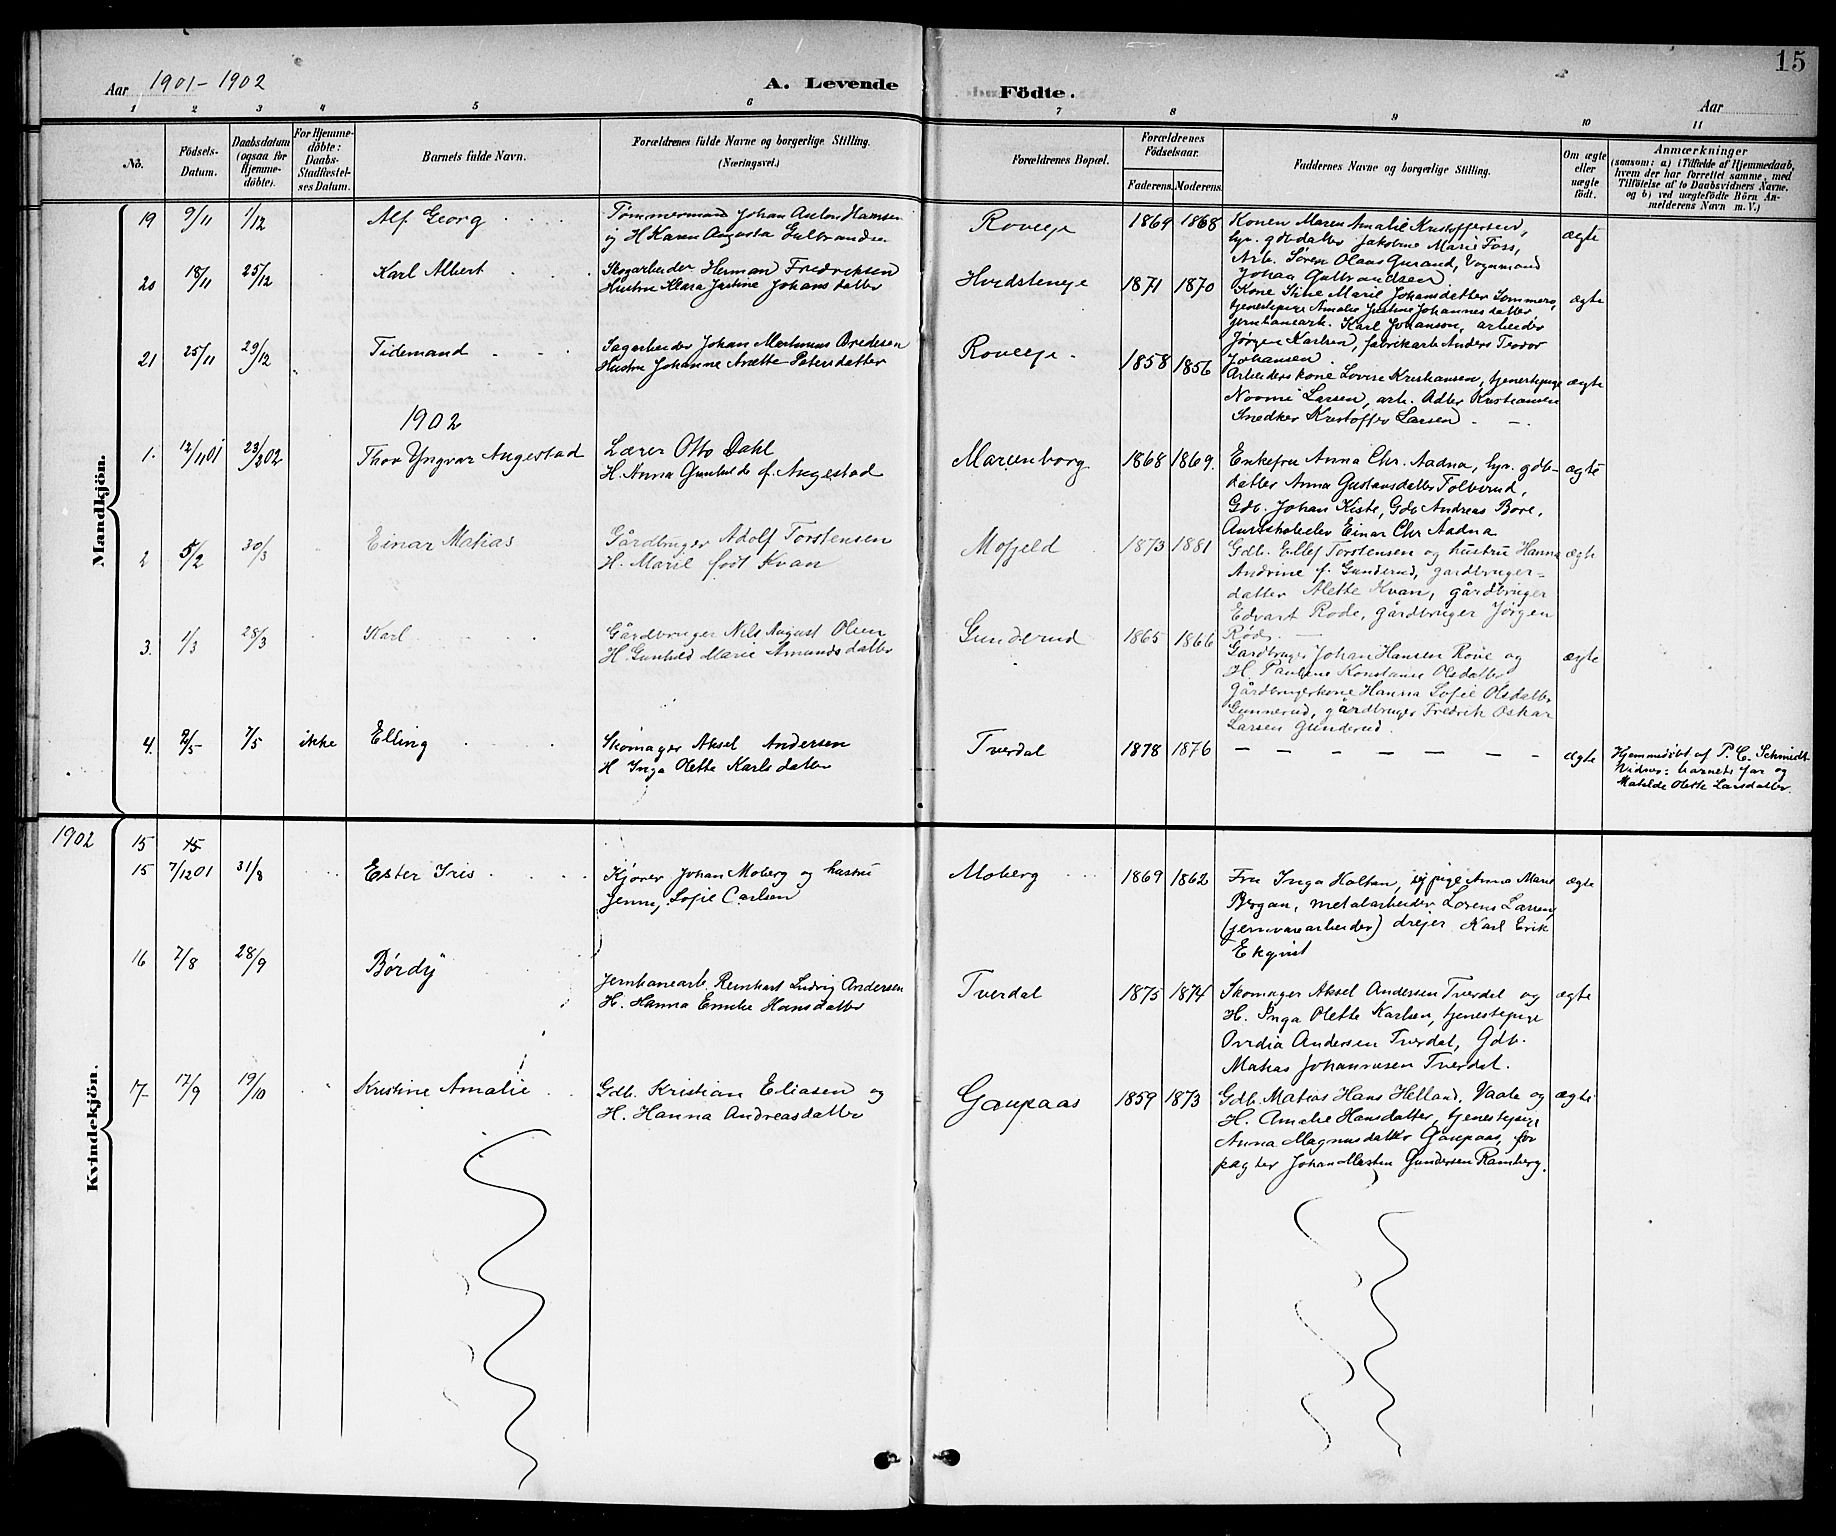 15
Aar 1901-1902
A. Levende Födte.
Aar
1 2 3 4 5 6 7 8 9 10 11
No.
Födsels-Datum.
Daabsdatum (ogsaa för Hjemmedöbte).
For Hjemmedöbte: Daabs-Stadfæstelses Datum.
Barnets fulde Navn.
Forældrenes fulde Navne og borgerlige Stilling. (Næringsvei.)
Forældrenes Bopæl.
Forældrenes Födselsaar.
Faderens. Moderens.
Faddernes Navne og borgerlige Stilling.
Om ægte eller uægte födt.
Anmærkninger
(saasom: a) i Tilfælde af Hjemmedaab,
hvem der har forrettet samme, med
Tilföielse af to Daabsvidners Navne.
og b) ved uægtefödte Börn Anmelderens Navn m. V.)
Mandkjön.
19 9/11 1/12 Alf Georg
Tømmermand Johan Anton Hansen
og H Karen Augusta Gulbrandsen
Roveje 1869 1868
Konen Maren Amalie Kristoffersen,
hyr. gdb.datter Jakobine Marie Foss,
Arb. Søren Olaus Gurand, Vognmand
Johan Gulbrandsen
ægte
20 18/11 25/12 Karl Albert
Skogarbeider Herman Fredriksen
Hustru Klara Justine Johansdatter
Hvidsteneje 1871 1870
Kone Stine Marie Johansdatter Sommero,
tjenestepige Amalie Justine Johannesdatter
jernbanearb. Karl Johanson, arbeider
Jørgen Karlsen, fabrikarb Anders Teodor
Johansen.
ægte
21 25/11 29/12 Tidemand
Sagarbeider Johan Martinius Bredesen
Hustru Johanne Anette Petersdatter
Roveeje. 1858 1856
Arbeiderskone Lovise Kristiansen, tjenestepige
Noomi Larsen, arb. Adler Kristiansen
Snedker Kristoffer Larsen.
ægte
1902
1. 12/11 01 23/2 02 Thor Yngvar Angestad
Lærer Otto Dahl
H. Anna Gunhilde f. Angestad
Marienborg 1868 1869.
Enkefru Anna Chr. Aadna, hyr. gdb-
datter Anna Gustavsdatter Tolverud,
Gdb. Johan Kiste, Gdb Andreas Bore,
Amtskoleelev Einar Chr Aadna
ægte
2 5/2 30/3 Einar Matias
Gårdbruger Adolf Torstensen
H. Marie født Kvan
Mofjeld 1873 1881
Gdb. Ellef Torstensen og hustru Hanna
Andrine f. Gunderud, gardbruger-
datter Alette Kvan, gårdbruger
Edvart Rode, gårdbruger Jørgen
Rød.
ægte
3. 1/3 28/3 Karl
Gårdbruger Nils August Olsen
H. Gunhild Marie Amundsdatter
Gunderud 1865 1866
Gardbruger Johan Hansen Rove og
H. Pauline Konstanse Olsdatter
gårdbrugerkone Hanna Sofie Olsdatter
Gunnerud, gårdbruger Fredrik Oskar
Larsen Gunderud.
ægte
4. 2/5 7/5 ikke Elling
Skomager Aksel Andersen
H Inga Olette Karlsdatter
Tverdal 1878 1876 — — — — — — — ægte
Hjemmedøbt af P. C. Schmidt
Vidner: barnets far og
Matilde Olette Larsdatter.
1902
Kvindekjön.
15 15
15 7/12 01 31/8 Ester Iris
Kjører Johan Moberg og hustru
Jenny Sofie Carlsen
Moberg 1869 1862
Fru Inga Holtan, sypige Anna Marie
Bergan, metalarbeider Lorens Larsen,
(jernvarearbeider) drejer Karl Erik
Ekqvist
ægte
16 7/8 28/9 Børdy
Jernbanearb. Reinhart Ludvig Andersen
H. Hanna Emilie Hansdatter
Tverdal 1875 1874
Skomager Aksel Andersen Tverdal og
H. Inga Olette Karlsen, tjenestepige
Ovidia Andersen Tverdal, Gdb.
Matias Johannesen Tverdal.
ægte
17 17/9 19/10 Kristine Amalie
Gdb. Kristian Eliasen og
H. Hanna Andreasdatter
Gaupaas 1859 1873
Gdb. Matias Hans Helland, Vaale og
H. Amalie Hansdatter, tjenestepige
Anna Magnusdatter Gaupaas, for
pagter Johan Martin Gundersen Ramberg.
ægte